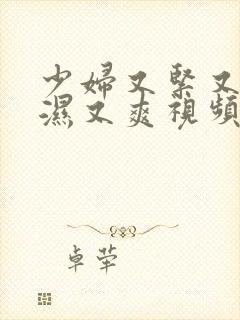 少婦又緊又
濕又爽視頻
卓犖